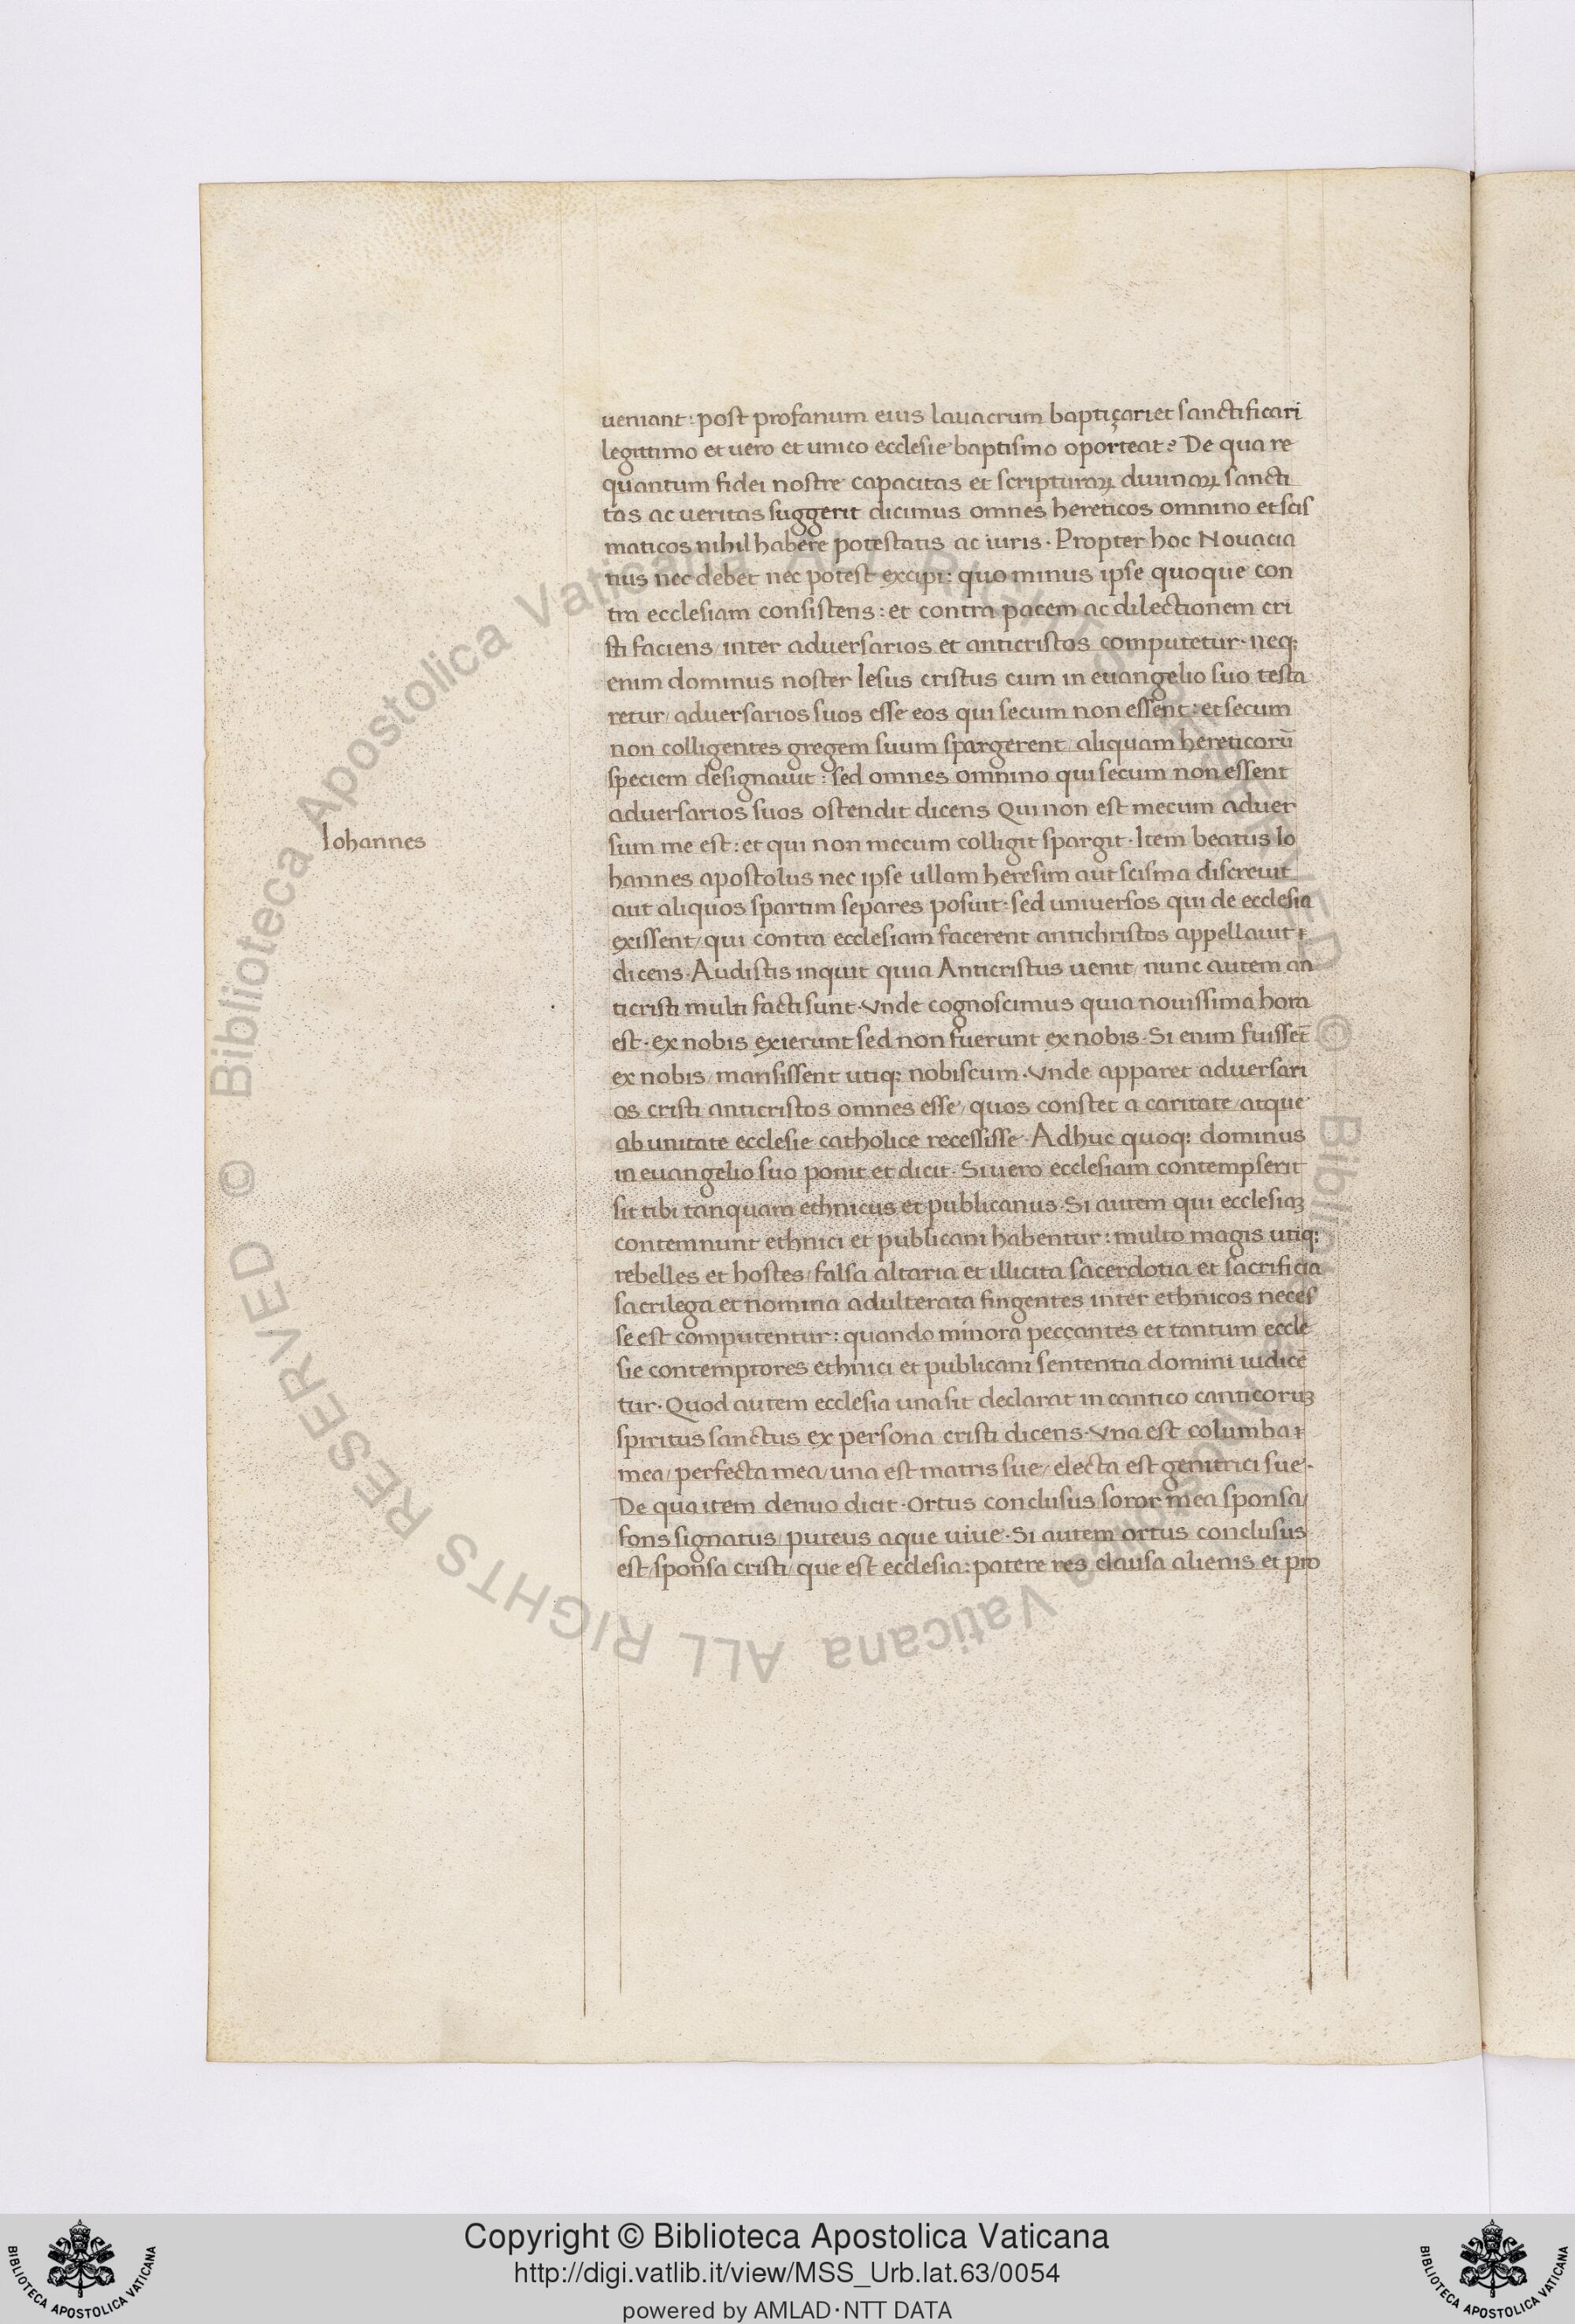 ueniant: post profanum eius lauacrum baptiçari et sanctificari
legittimo et uero et unico ecclesie baptismo oporteat? De qua re
quantum fidei nostre capacitas et scripturaꝝ diuinaꝝ sancti
tas ac ueritas suggerit dicimus omnes hereticos omnino et scis
maticos nihil habere potestatis ac iuris. Propter hoc Nouacia
nus nec debet nec potest excipi: quo minus ipse quoque con
tra ecclesiam consistens: et contra pacem ac dilectionem cri
sti faciens/ inter adversarios et anticristos computetur. neq;
enim dominus noster Iesus cristus cum in euangelio suo testa
retur/ adversarios suos esse eos qui secum non essent: et secum
non colligentes gregem suum spargerent/ aliquam hereticorū
speciem designauit: sed omnes omnino qui secum non essent
adversarios suos ostendit dicens Qui non est mecum adver
Iohannes
sum me est: et qui non mecum colligit spargit. Item beatus Io
hannes apostolus nec ipse ullam heresim aut scisma discreuit
aut aliquos spartim separes posuit: sed universos qui de ecclesia
exissent/ qui contra ecclesiam facerent antichristos appellauit
dicens. Audistis inquit quia Anticristus uenit/ nunc autem an
ticristi multi facti sunt. Vnde cognoscimus quia nouissima hora
est. ex nobis exierunt sed non fuerunt ex nobis. Si enim fuissēt
ex nobis/ mansissent utiq; nobiscum. Vnde apparet adversari
os cristi anticristos omnes esse/ quos constet a caritate/ atque
ab unitate ecclesie catholice recessisse. Adhuc quoq; dominus
in euangelio suo ponit et dicit. Si uero ecclesiam contempserit
sit tibi tanquam ethnicus et publicanus. Si autem qui ecclesiaꝫ
contemnunt ethnici et publicani habentur: multo magis utiq;
rebelles et hostes/ falsa altaria et illicita sacerdotia et sacrificia
sacrilega et nomina adulterata fingentes inter ethnicos neces
se est computentur: quando minora peccantes et tantum eccle
sie contemptores ethnici et publicani sententia domini iudicē
tur. Quod autem ecclesia una sit declarat in cantico canticoruꝫ
spiritus sanctus ex persona cristi dicens. Vna est columba
mea/ perfecta mea/ una est matris sue/ electa est genitrici sue.
De qua item denuo dicit. Ortus conclusus soror mea sponsa/
fons signatus/ puteus aque uiue. Si autem ortus conclusus
est/ sponsa cristi/ que est ecclesia: patere res clausa alienis et pro
© Biblioteca Apostolica Vaticana ALL RIGHTS RESERVED
© Biblioteca Apostolica Vaticana ALL RIGHTS RESERVED
Copyright © Biblioteca Apostolica Vaticana
http://digi.vatlib.it/view/MSS_Urb.lat.63/0054
powered by AMLAD·NTT DATA
BIBLIOTECA APOSTOLICA VATICANA
BIBLIOTECA APOSTOLICA VATICANA